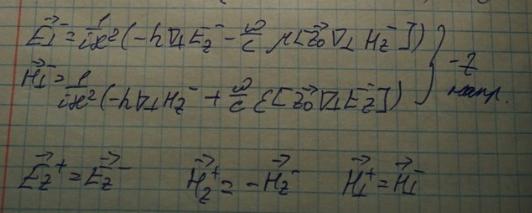 E⃗⊥⁻ = 1/(iæ²) (-h∇⊥E_z⁻ - ω/c μ[z⃗₀∇⊥H_z⁻])
H⃗⊥⁻ = 1/(iæ²) (-h∇⊥H_z⁻ + ω/c ε[z⃗₀∇⊥E_z⁻]) } -z напр.
E⃗_z⁺ = E⃗_z⁻ H⃗_z⁺ = -H⃗_z⁻ H⃗⊥⁺ = H⃗⊥⁻